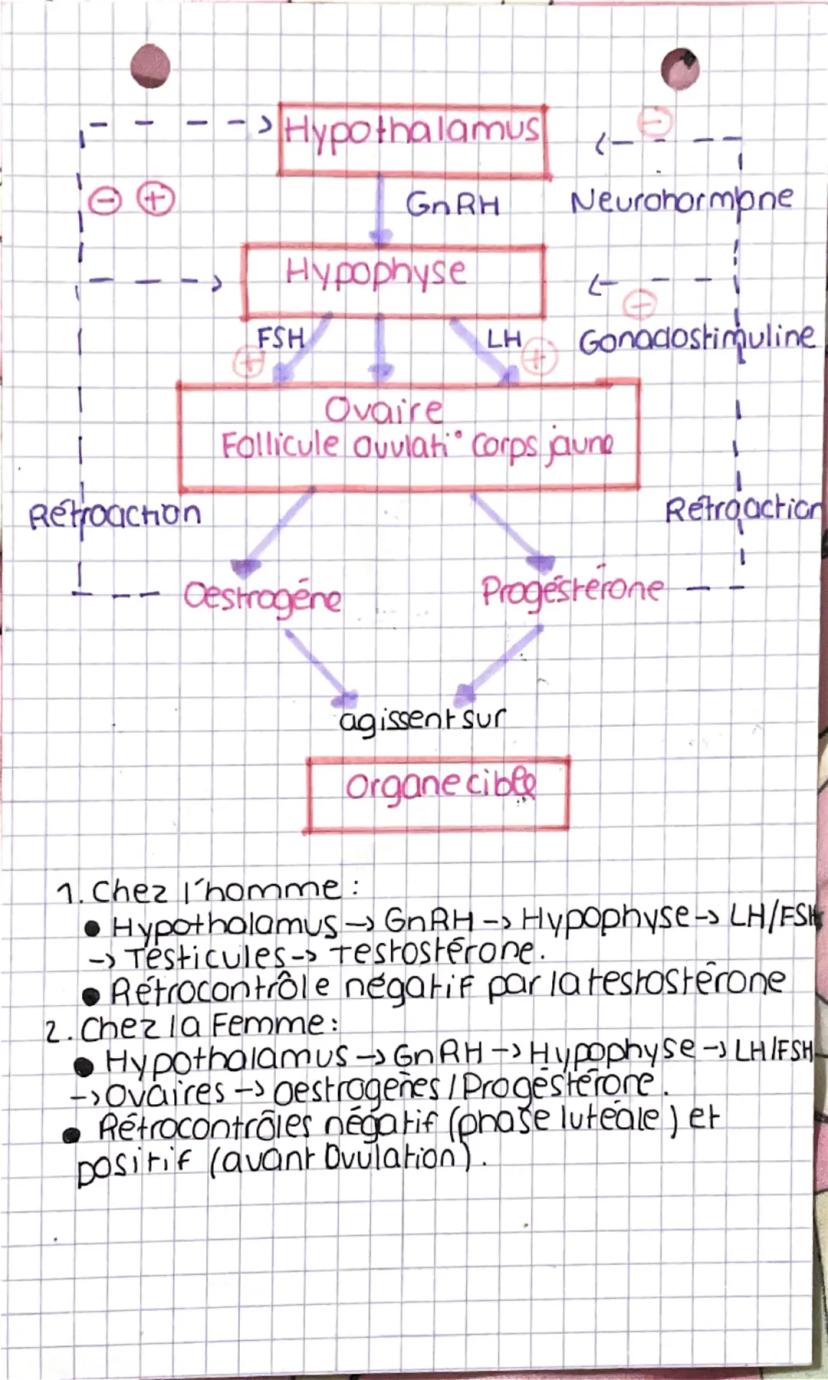 Hypothalamus
⊖
⊖ ⊕
GnRH
Neurohormone
Hypophyse
⊖
FSH
LH
Gonadostimuline
⊕
⊕
Ovaire
Follicule ovulati° Corps jaune
Rétroaction
Rétroaction
Oestrogéne
Progéstérone
agissent sur
Organe cible
1. Chez l'homme :
• Hypothalamus → GnRH → Hypophyse → LH/FSH
→ Testicules → Testostérone.
• Rétrocontrôle négatif par la testostérone
2. Chez la Femme :
• Hypothalamus → GnRH → Hypophyse → LH/FSH
→ Ovaires → oestrogènes / Progéstérone.
• Rétrocontrôles négatif (phase lutéale) et
positif (avant Ovulation).